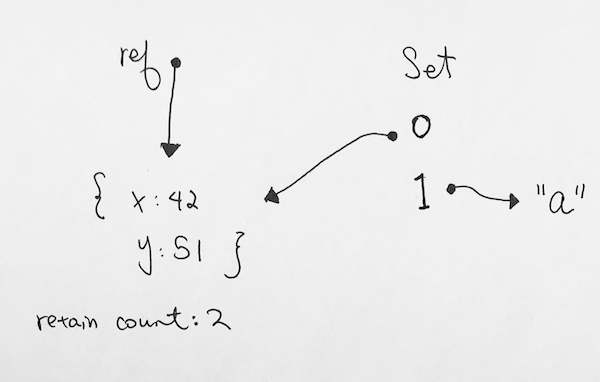 ref
Set
0
{ x:42
1
"a"
y:51 }
retain count:2